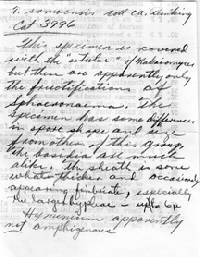 Cat 3996
This specimen is covered
with the "stilbe" of Matruchotia
but there are apparently only
the fructifications of
Sphaeronaema. The
specimen has some differences
in spore shape and size
from others of this group
the basidia all much
alike. The sheath is some
what thicker and occasionally
appearing fimbriate, especially
the larger hyphae - up to
Hymenium apparently
not amphigenous